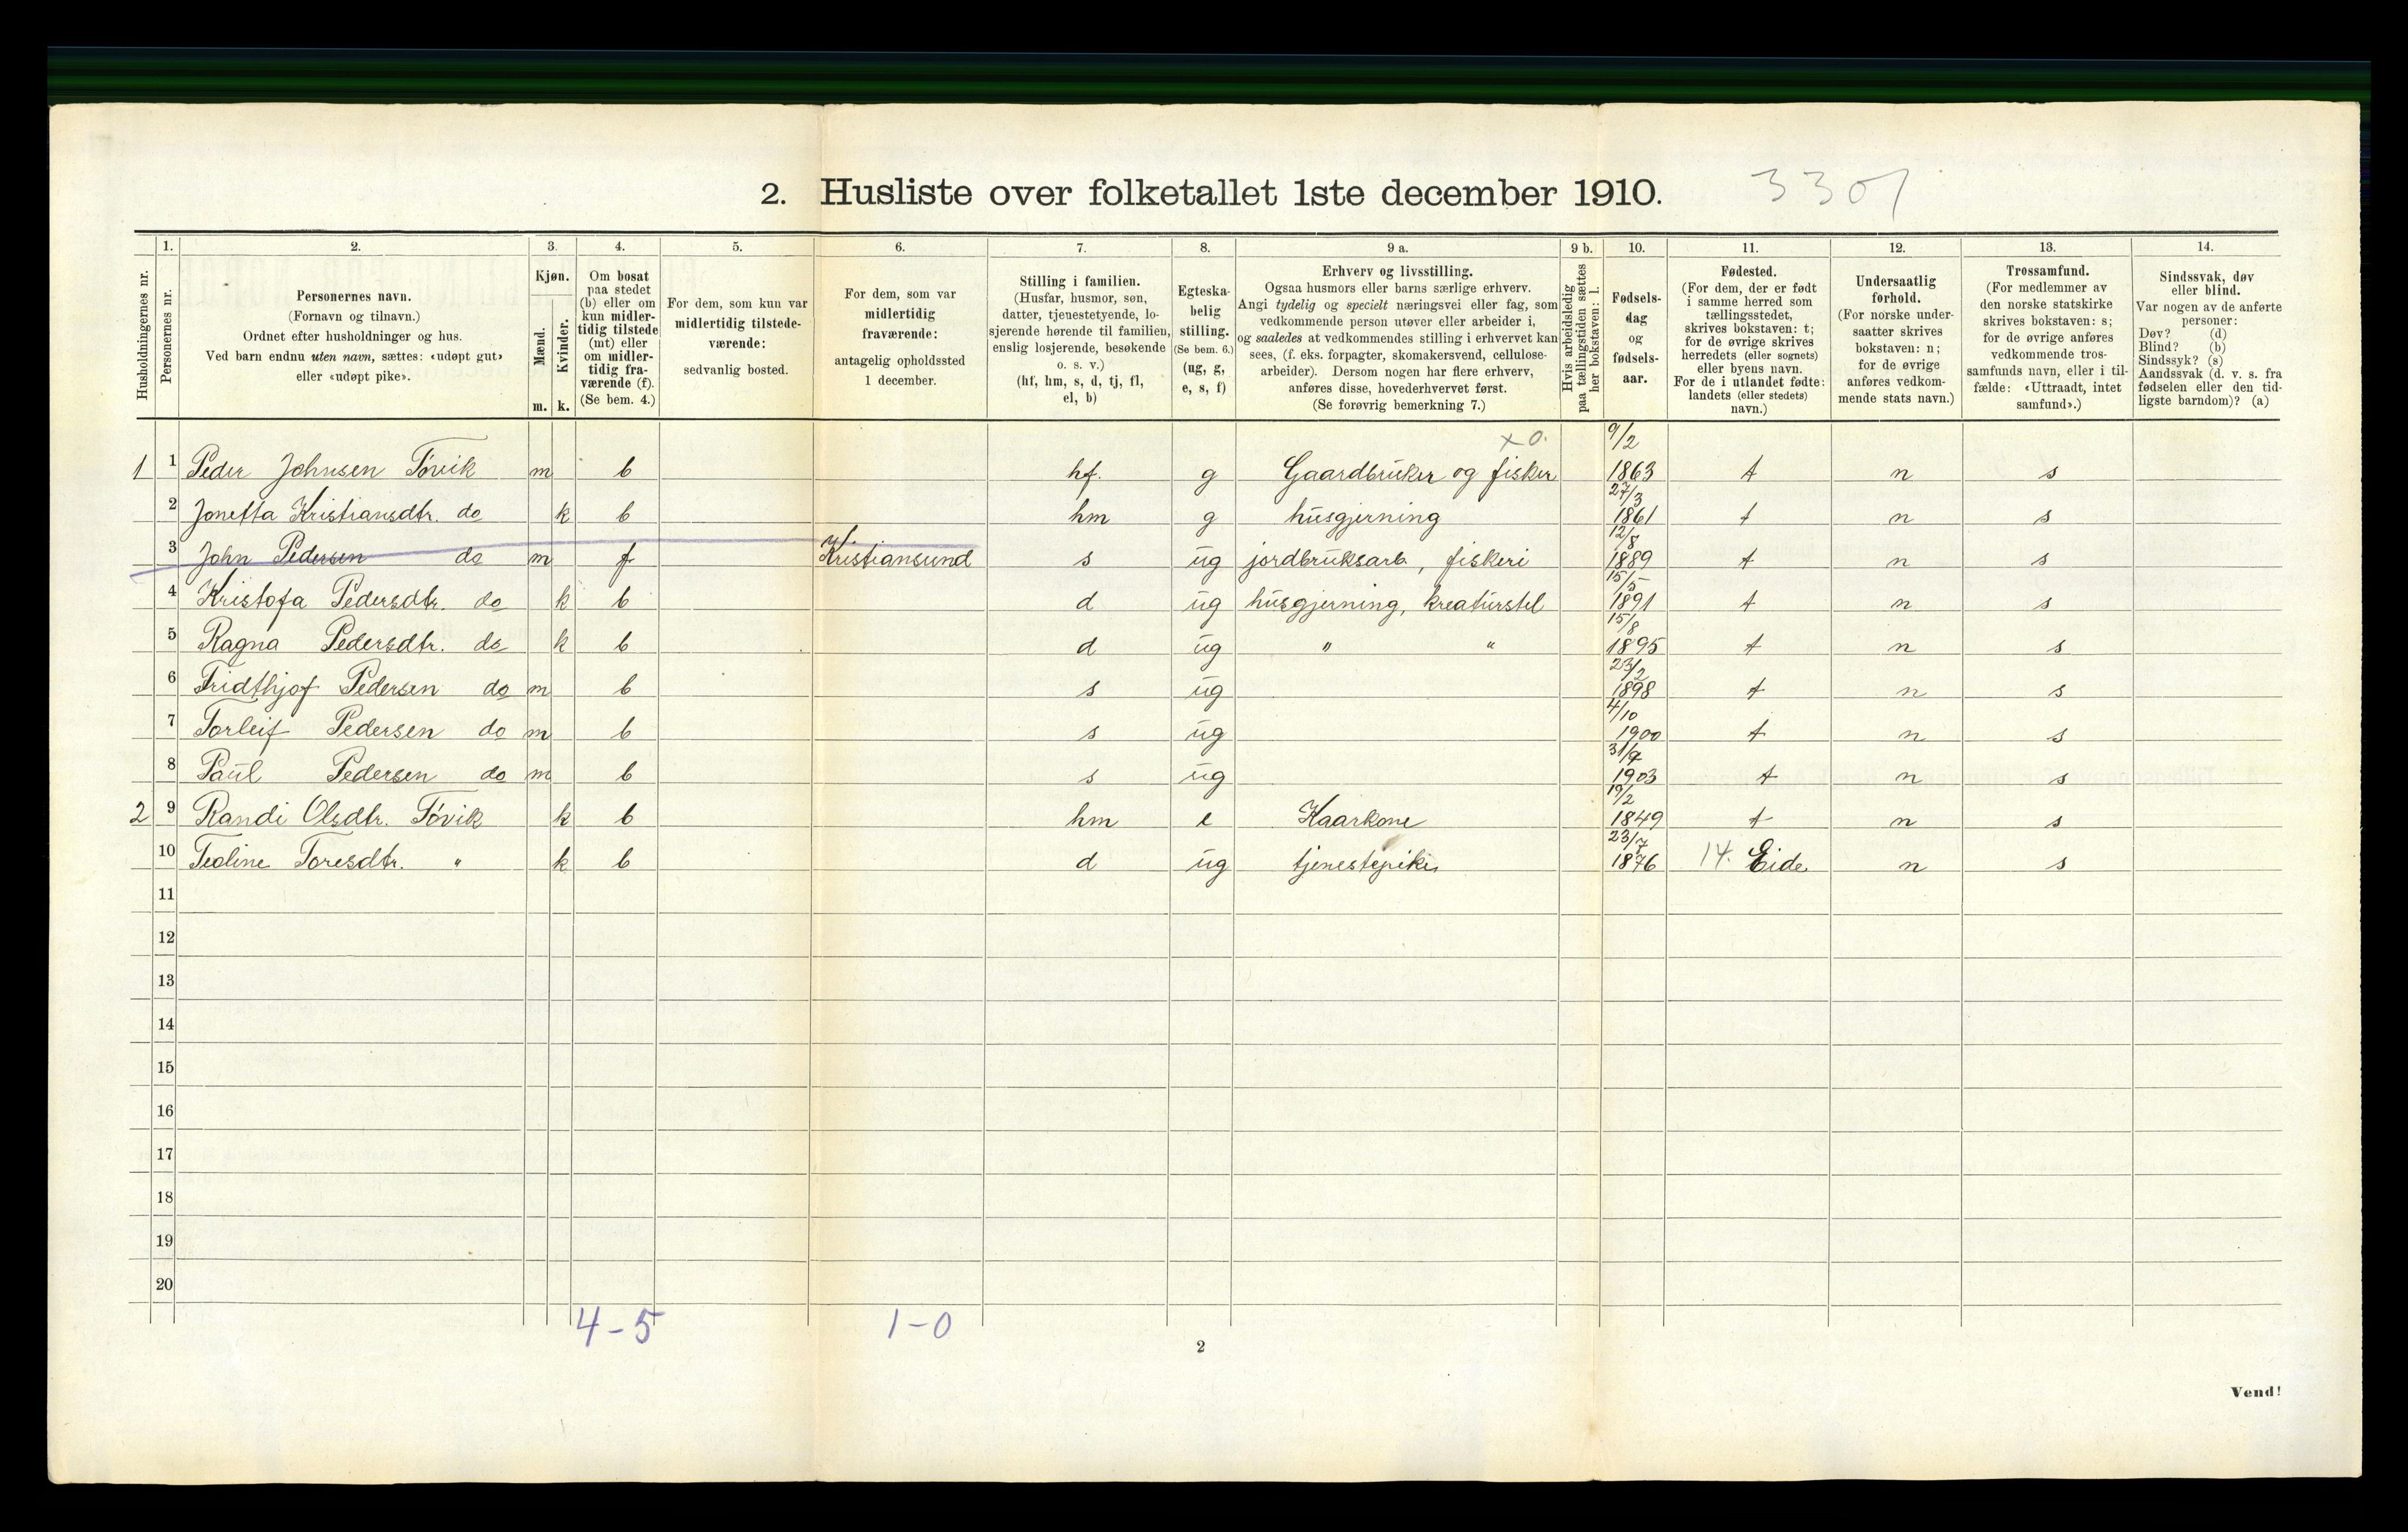 2. Husliste over folketallet 1ste december 1910. 3307
Husholdningernes nr.
1. Personernes nr.
2. Personernes navn.
(Fornavn og tilnavn.)
Ordnet efter husholdninger og hus.
Ved barn endnu uten navn, sættes: «udøpt gut»
eller «udøpt pike».
3. Kjøn.
Mænd. m.
Kvinder. k.
4. Om bosat
paa stedet
(b) eller om
kun midler-
tidig tilstede
(mt) eller
om midler-
tidig fra-
værende (f).
(Se bem. 4.)
5. For dem, som kun var
midlertidig tilstede-
værende:
sedvanlig bosted.
6. For dem, som var
midlertidig
fraværende:
antagelig opholdssted
1 december.
7. Stilling i familien.
(Husfar, husmor, søn,
datter, tjenestetyende, lo-
sjerende hørende til familien,
enslig losjerende, besøkende
o. s. v.)
(hf, hm, s, d, tj, fl,
el, b)
8. Egteska-
belig
stilling.
(Se bem. 6.)
(ug, g,
e, s, f)
9 a. Erhverv og livsstilling.
Ogsaa husmors eller barns særlige erhverv.
Angi tydelig og specielt næringsvei eller fag, som
vedkommende person utøver eller arbeider i,
og saaledes at vedkommendes stilling i erhvervet kan
sees, (f. eks. forpagter, skomakersvend, cellulose-
arbeider). Dersom nogen har flere erhverv,
anføres disse, hovederhvervet først.
(Se forøvrig bemerkning 7.)
9 b. Hvis arbeidsledig
paa tællingstiden sættes
her bokstaven: l.
10. Fødsels-
dag
og
fødsels-
aar.
11. Fødested.
(For dem, der er født
i samme herred som
tællingsstedet,
skrives bokstaven: t;
for de øvrige skrives
herredets (eller sognets)
eller byens navn.
For de i utlandet fødte:
landets (eller stedets)
navn.)
12. Undersaatlig
forhold.
(For norske under-
saatter skrives
bokstaven: n;
for de øvrige
anføres vedkom-
mende stats navn.)
13. Trossamfund.
(For medlemmer av
den norske statskirke
skrives bokstaven: s;
for de øvrige anføres
vedkommende tros-
samfunds navn, eller i til-
fælde: «Uttraadt, intet
samfund».)
14. Sindssvak, døv
eller blind.
Var nogen av de anførte
personer:
Døv? (d)
Blind? (b)
Sindssyk? (s)
Aandssvak (d. v. s. fra
fødselen eller den tid-
ligste barndom)? (a)
x o.
1 1 Peder Johnsen Tövik m b hf. g Gaardbruker og fisker 9/2 1863 t n s
2 Jonetta Kristiansdtr. do k b hm g husgjerning 27/3 1861 t n s
3 John Pedersen do m f Kristiansund s ug jordbruksarb, fiskeri 12/8 1889 t n s
4 Kristofa Pedersdtr. do k b d ug husgjerning, kreaturstel 15/5 1891 t n s
5 Ragna Pedersdtr. do k b d ug " " 15/8 1895 t n s
6 Fridthjof Pedersen do m b s ug 23/2 1898 t n s
7 Torleif Pedersen do m b s ug 4/10 1900 t n s
8 Paul Pedersen do m b s ug 1903 t n s
2 9 Randi Olsdtr. Tövik k b hm e Kaarkone 19/2 1849 t n s
10 Teoline Toresdtr. " k b d ug tjenestepike 23/7 1876 14. Eide n s
11
12
13
14
15
16
17
18
19
20
4-5 1-0
2
Vend!